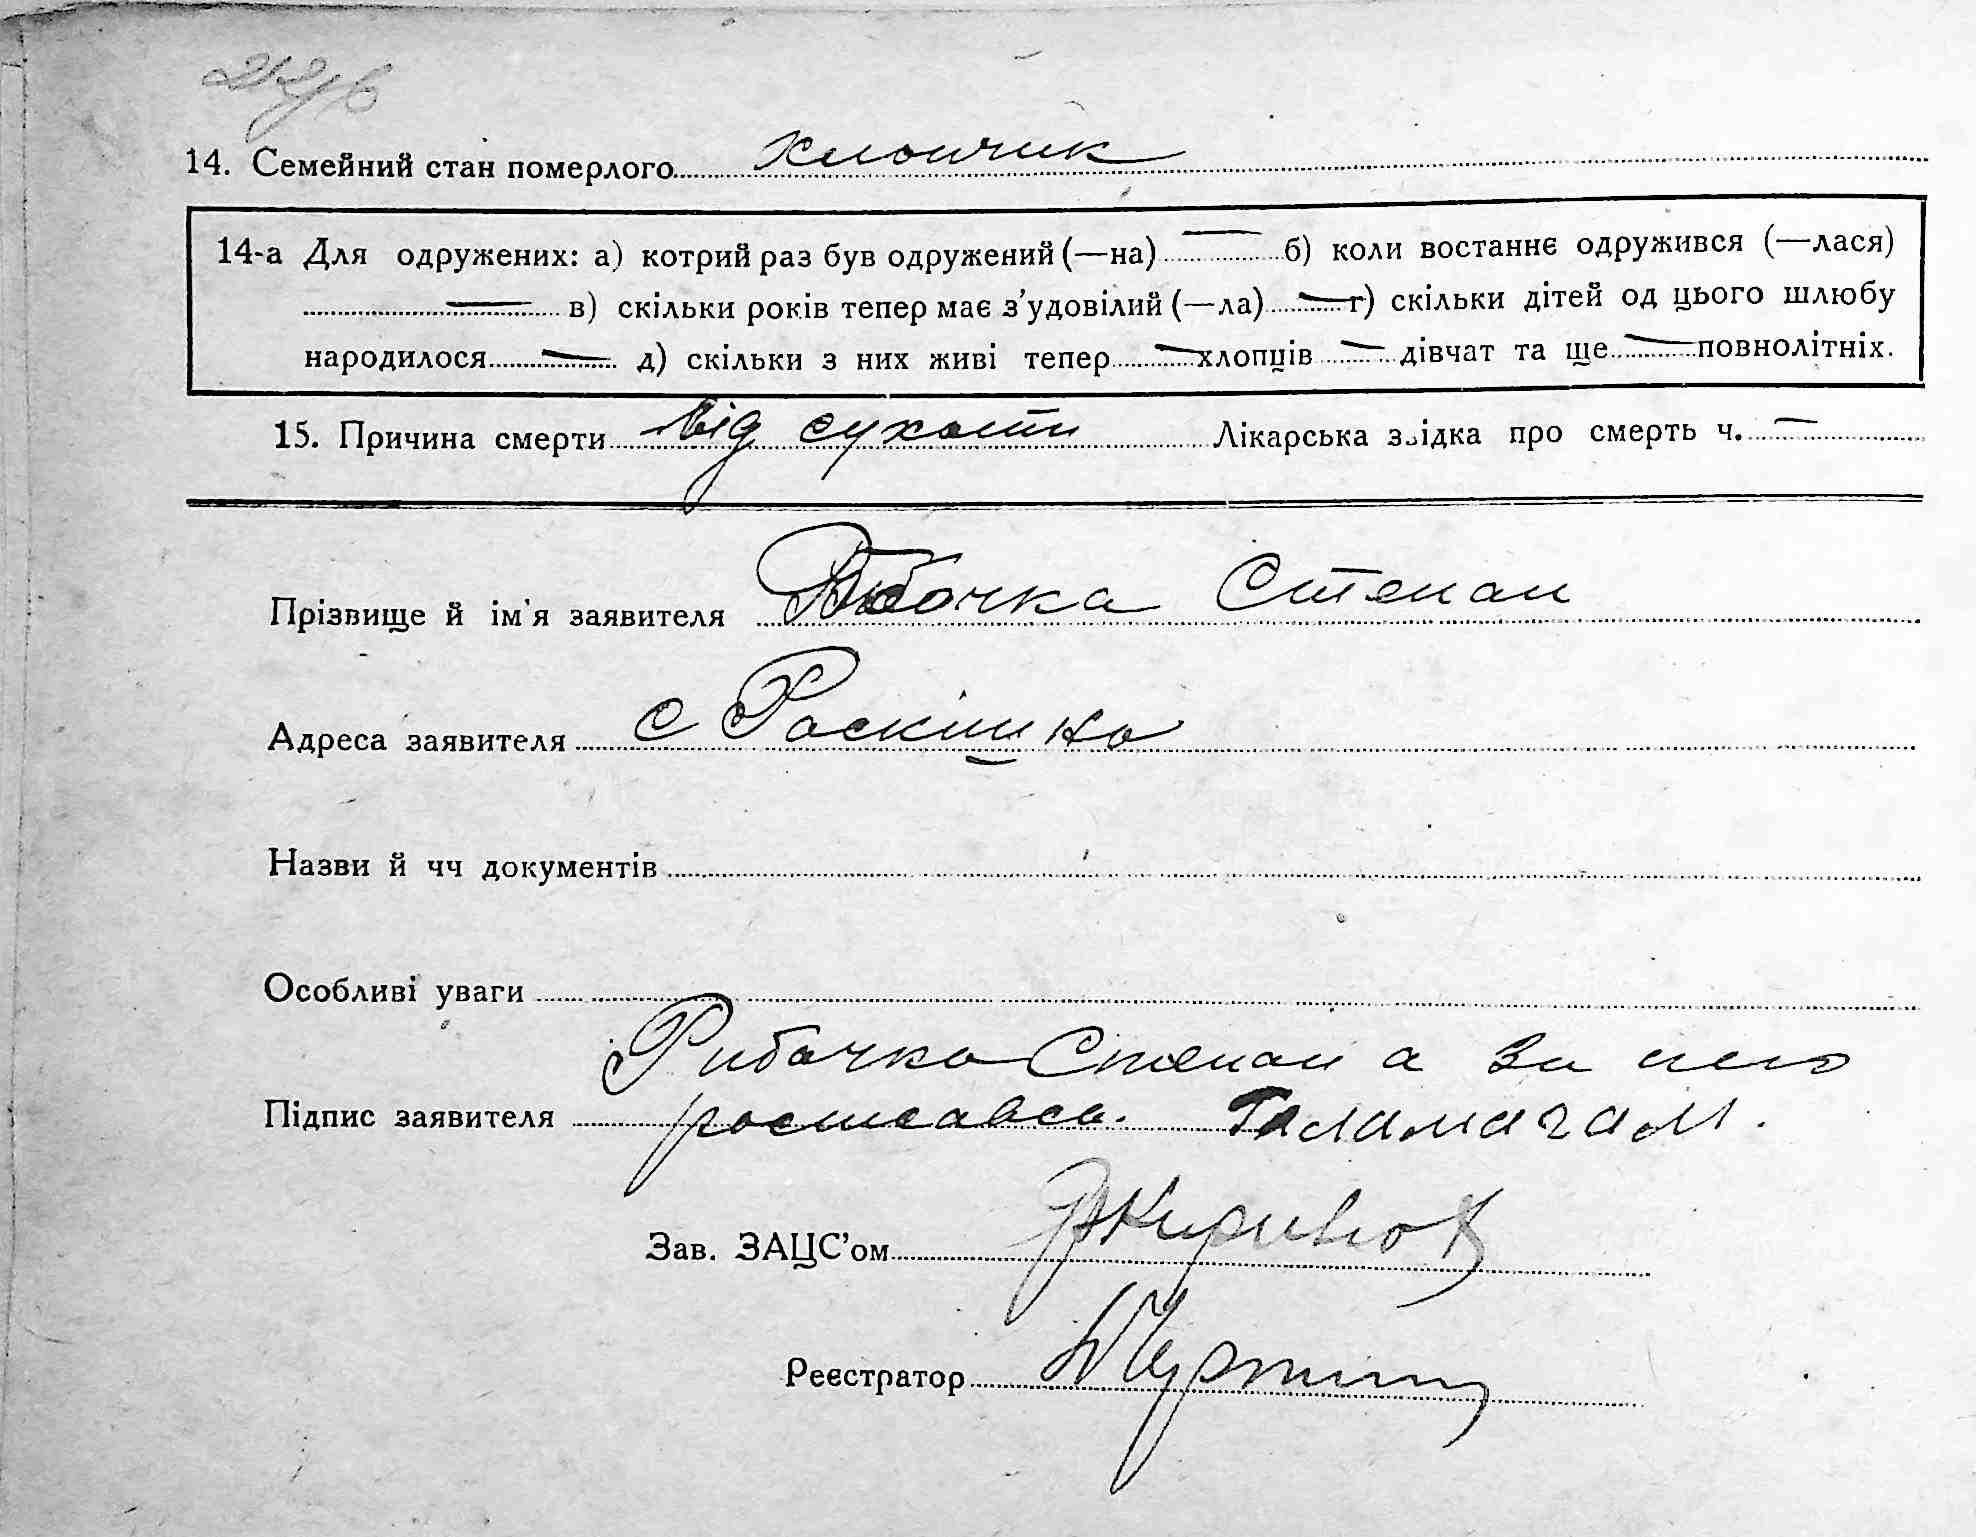 14. Семейний стан померлого хлопчик
14-а Для одружених: а) котрий раз був одружений (—на) — б) коли востаннє одружився (—лася)
— в) скільки років тепер має з’удовілий (—ла) — г) скільки дітей од цього шлюбу
народилося — д) скільки з них живі тепер — хлопців — дівчат та ще — повнолітніх.
15. Причина смерти від сухоти Лікарська звідка про смерть ч. —
Прізвище й ім'я заявителя Рибачка Степан
Адреса заявителя с Раскішно
Назви й чч документів
Особливі уваги
Рибачка Степан а за него
Підпис заявителя росписавсь.
Зав. ЗАЦС’ом
Реєстратор